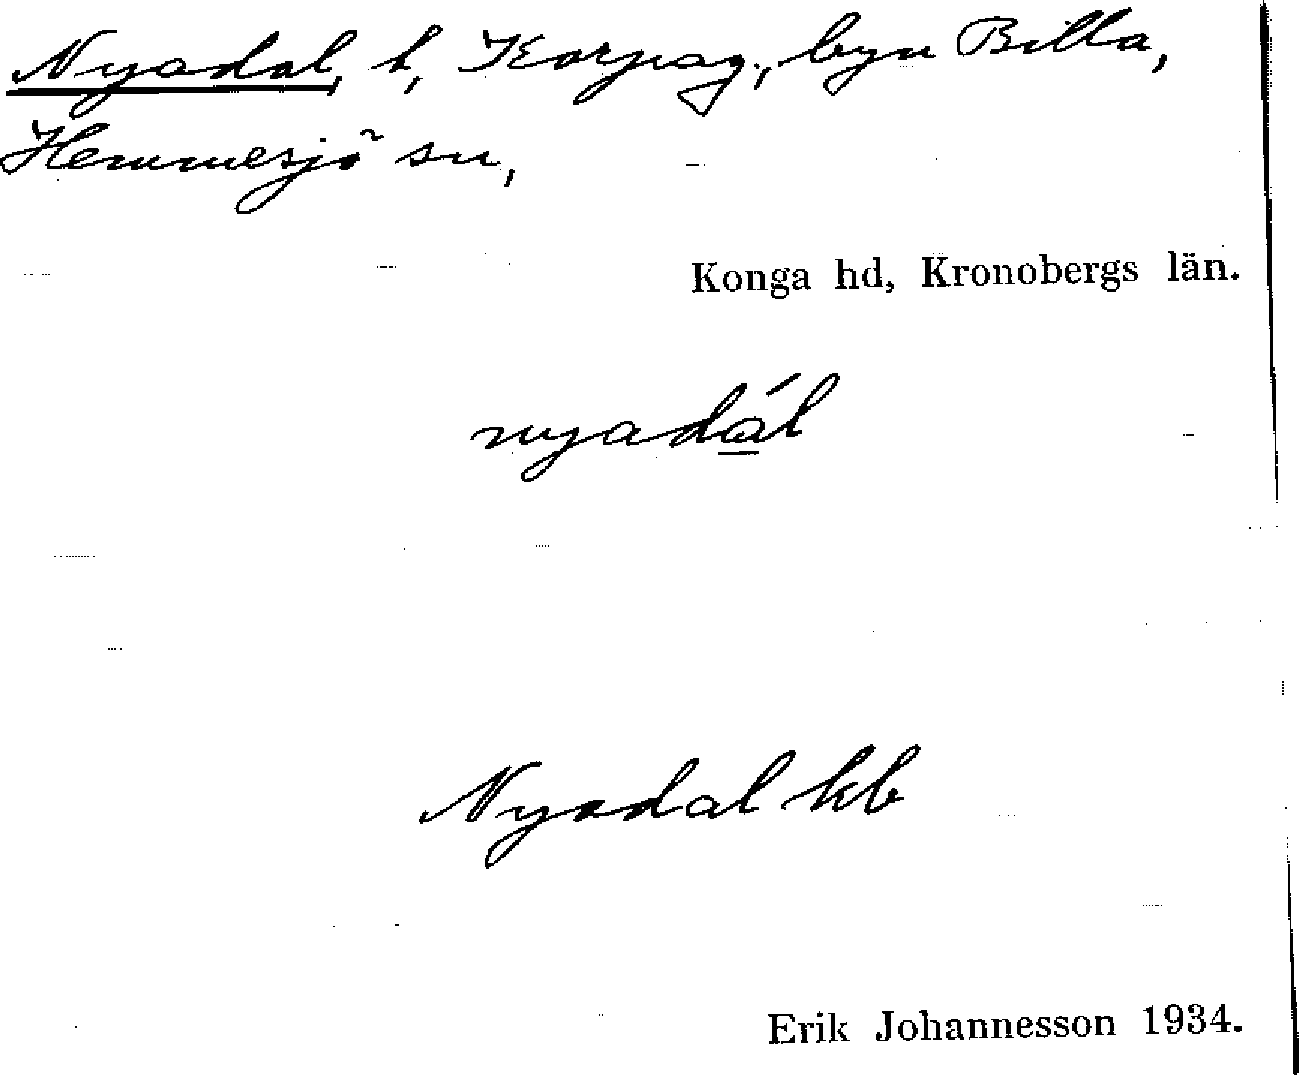 Nyadal, t, Korpag., byn Billa,
Hemmesjö sn,
Konga hd, Kronobergs län.
nyadál
Nyadal kb
Erik Johannesson 1934.